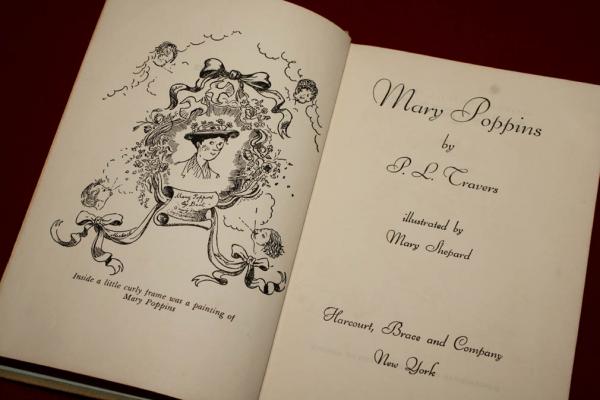 Mary Poppins
By Bert
Inside a little curly frame was a painting of
Mary Poppins
Mary Poppins
by
P. L. Travers
illustrated by
Mary Shepard
Harcourt, Brace and Company
New York